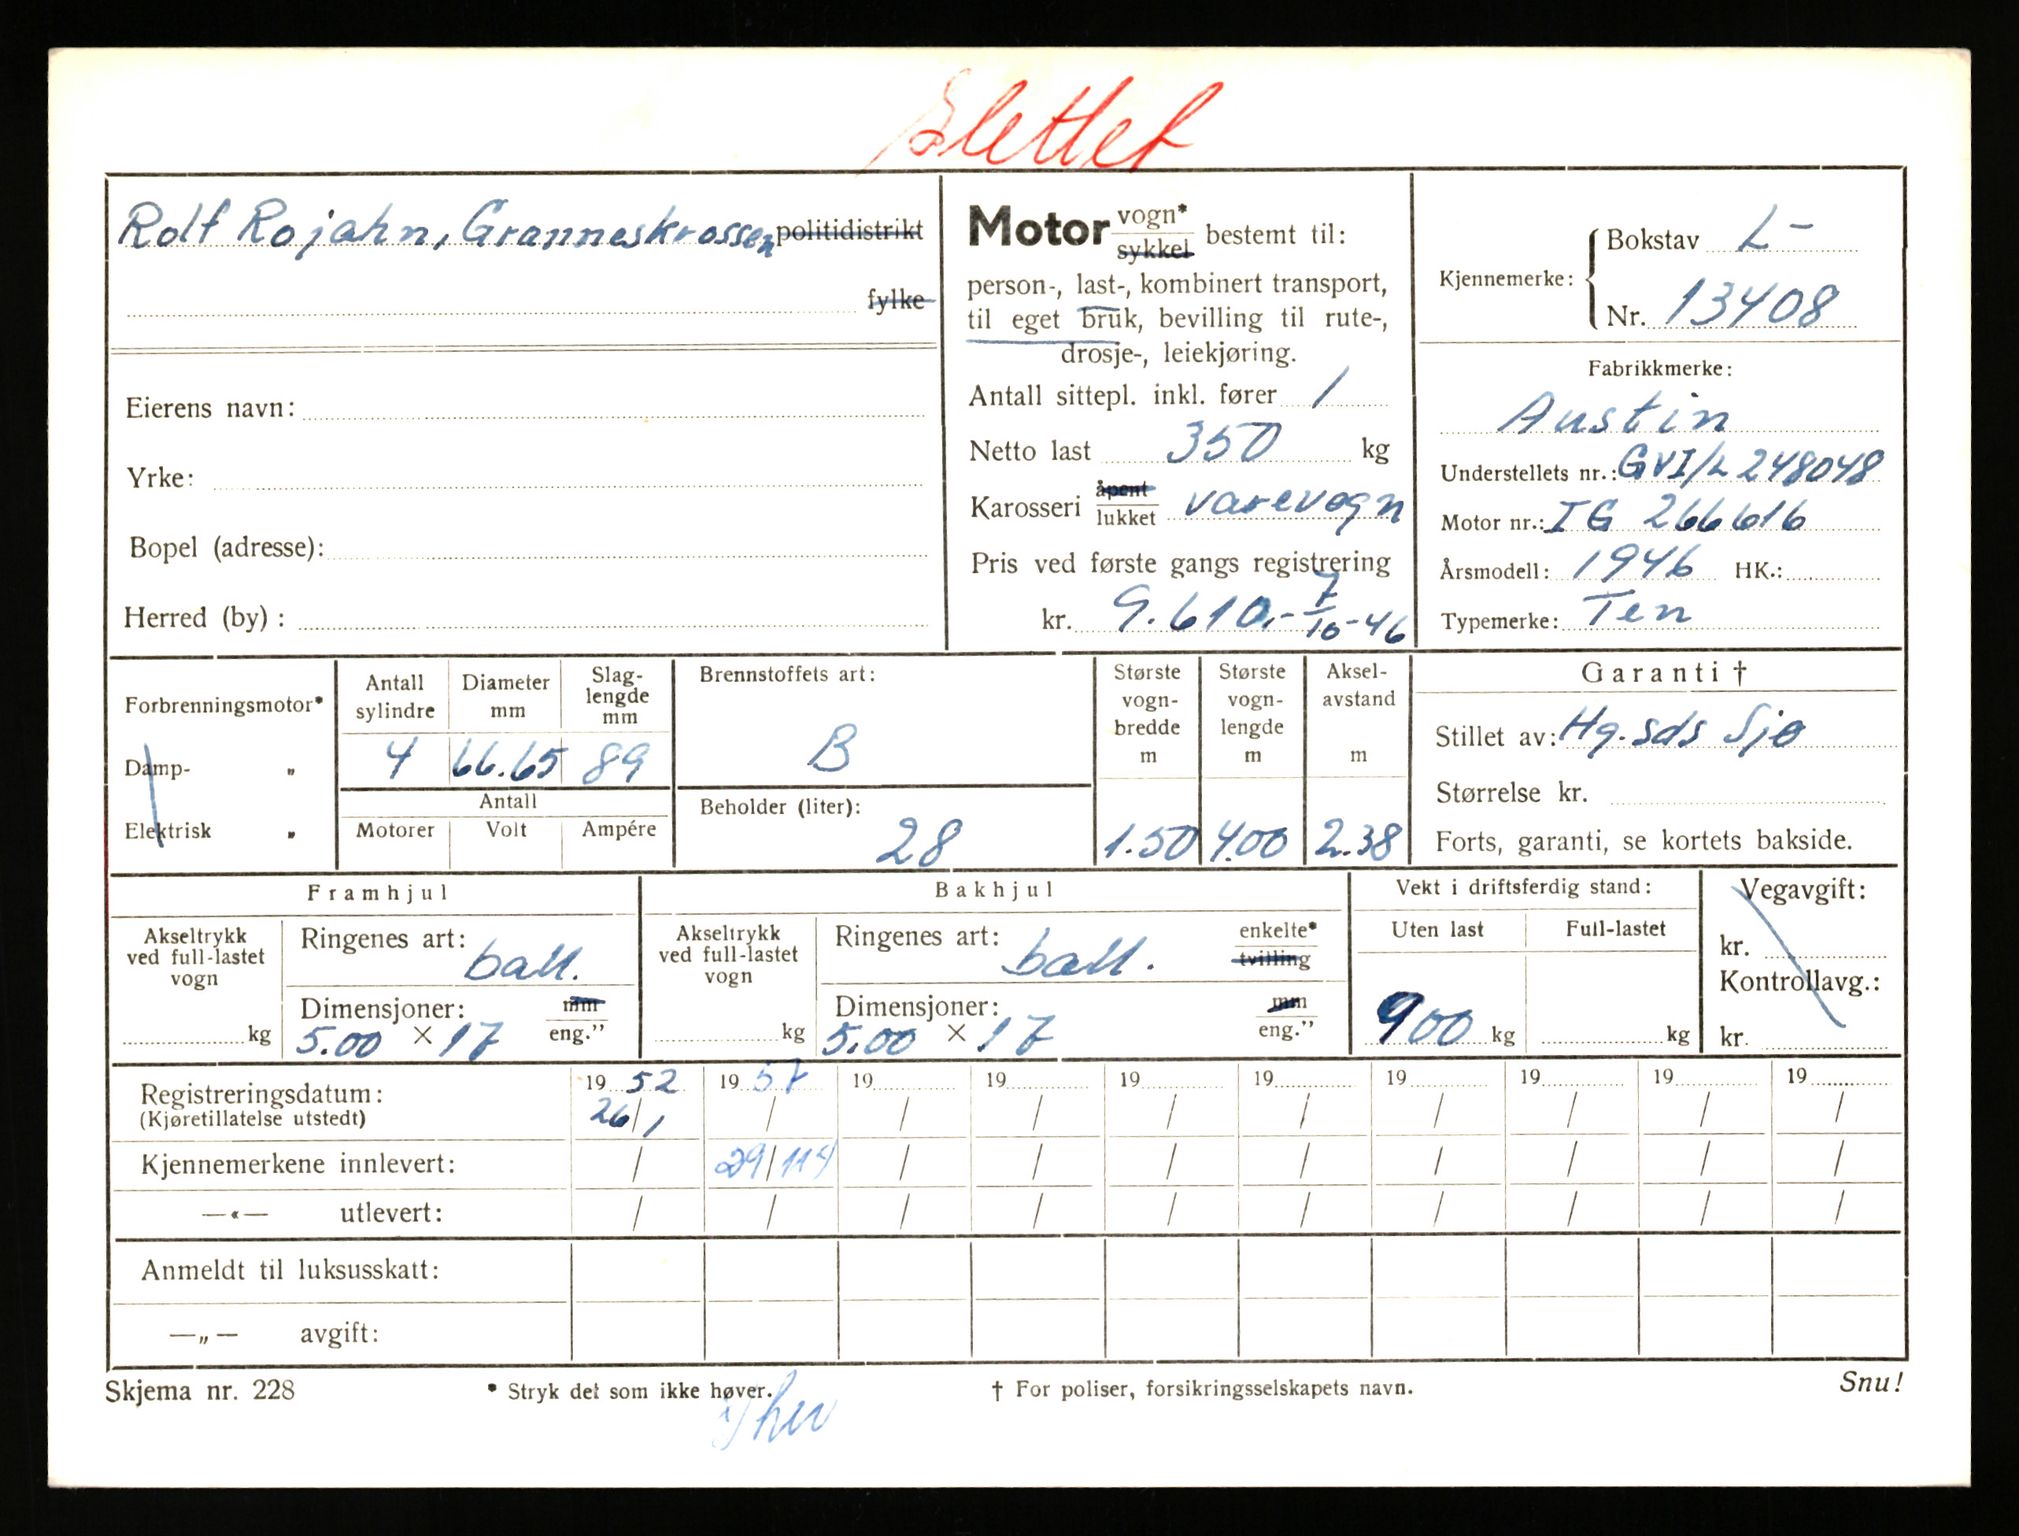 Slettet
Rolf Rojahn, Granneskrossen politidistrikt
fylke
Eierens navn:
Yrke:
Bopel (adresse):
Herred (by) :
Motor vogn* sykkel bestemt til:
person-, last-, kombinert transport,
til eget bruk, bevilling til rute-,
drosje-, leiekjøring.
Antall sittepl. inkl. fører 1
Netto last 350 kg
Karosseri åpent lukket varevogn
Pris ved første gangs registrering
kr. 9.610,- 7/10-46
Kjennemerke: { Bokstav L-
Nr. 13408
Fabrikkmerke:
Austin
Understellets nr.: GVI/L 248048
Motor nr.: IG 266616
Årsmodell: 1946 HK.:
Typemerke: Ten
Forbrenningsmotor*
Damp- „
Elektrisk „
Antall sylindre
Diameter mm
Slag-lengde mm
4 66.65 89
Antall
Motorer Volt Ampére
Brennstoffets art:
B
Beholder (liter):
28
Største vogn-bredde m
1.50
Største vogn-lengde m
4.00
Aksel-avstand m
2.38
Garanti †
Stillet av: Hg. sds Sjo
Størrelse kr.
Forts, garanti, se kortets bakside.
Framhjul
Akseltrykk ved full-lastet vogn
kg
Ringenes art: ball.
Dimensjoner: mm
5.00 × 17 eng.”
Bakhjul
Akseltrykk ved full-lastet vogn
kg
Ringenes art: ball. enkelte* tvilling
Dimensjoner: mm
5.00 × 17 eng.”
Vekt i driftsferdig stand:
Uten last Full-lastet
900 kg kg
Vegavgift:
kr.
Kontrollavg.:
kr.
Registreringsdatum: 19 52 19 57 19 19 19 19 19 19 19 19
(Kjøretillatelse utstedt) 26/1 / / / / / / / / /
Kjennemerkene innlevert: / 29/11 / / / / / / / /
—«— utlevert: / / / / / / / / / /
Anmeldt til luksusskatt:
—„— avgift:
Skjema nr. 228 * Stryk det som ikke høver. † For poliser, forsikringsselskapets navn. Snu!